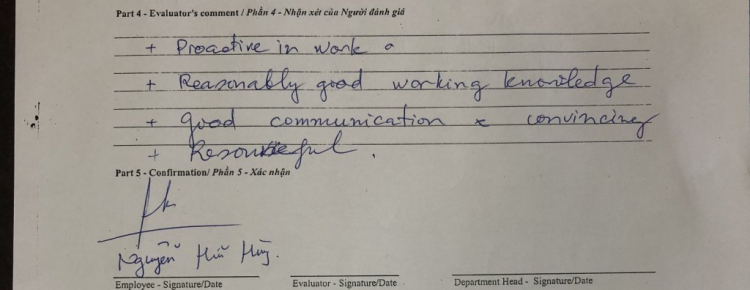 Part 4 - Evaluator's comment / Phần 4 - Nhận xét của Người đánh giá
+ Proactive in work
+ Reasonably good working knowledge
+ good communication & convincing
+ Resourceful.
Part 5 - Confirmation/ Phần 5 - Xác nhận
Nguyễn Hữu
Employee - Signature/Date Evaluator - Signature/Date Department Head - Signature/Date